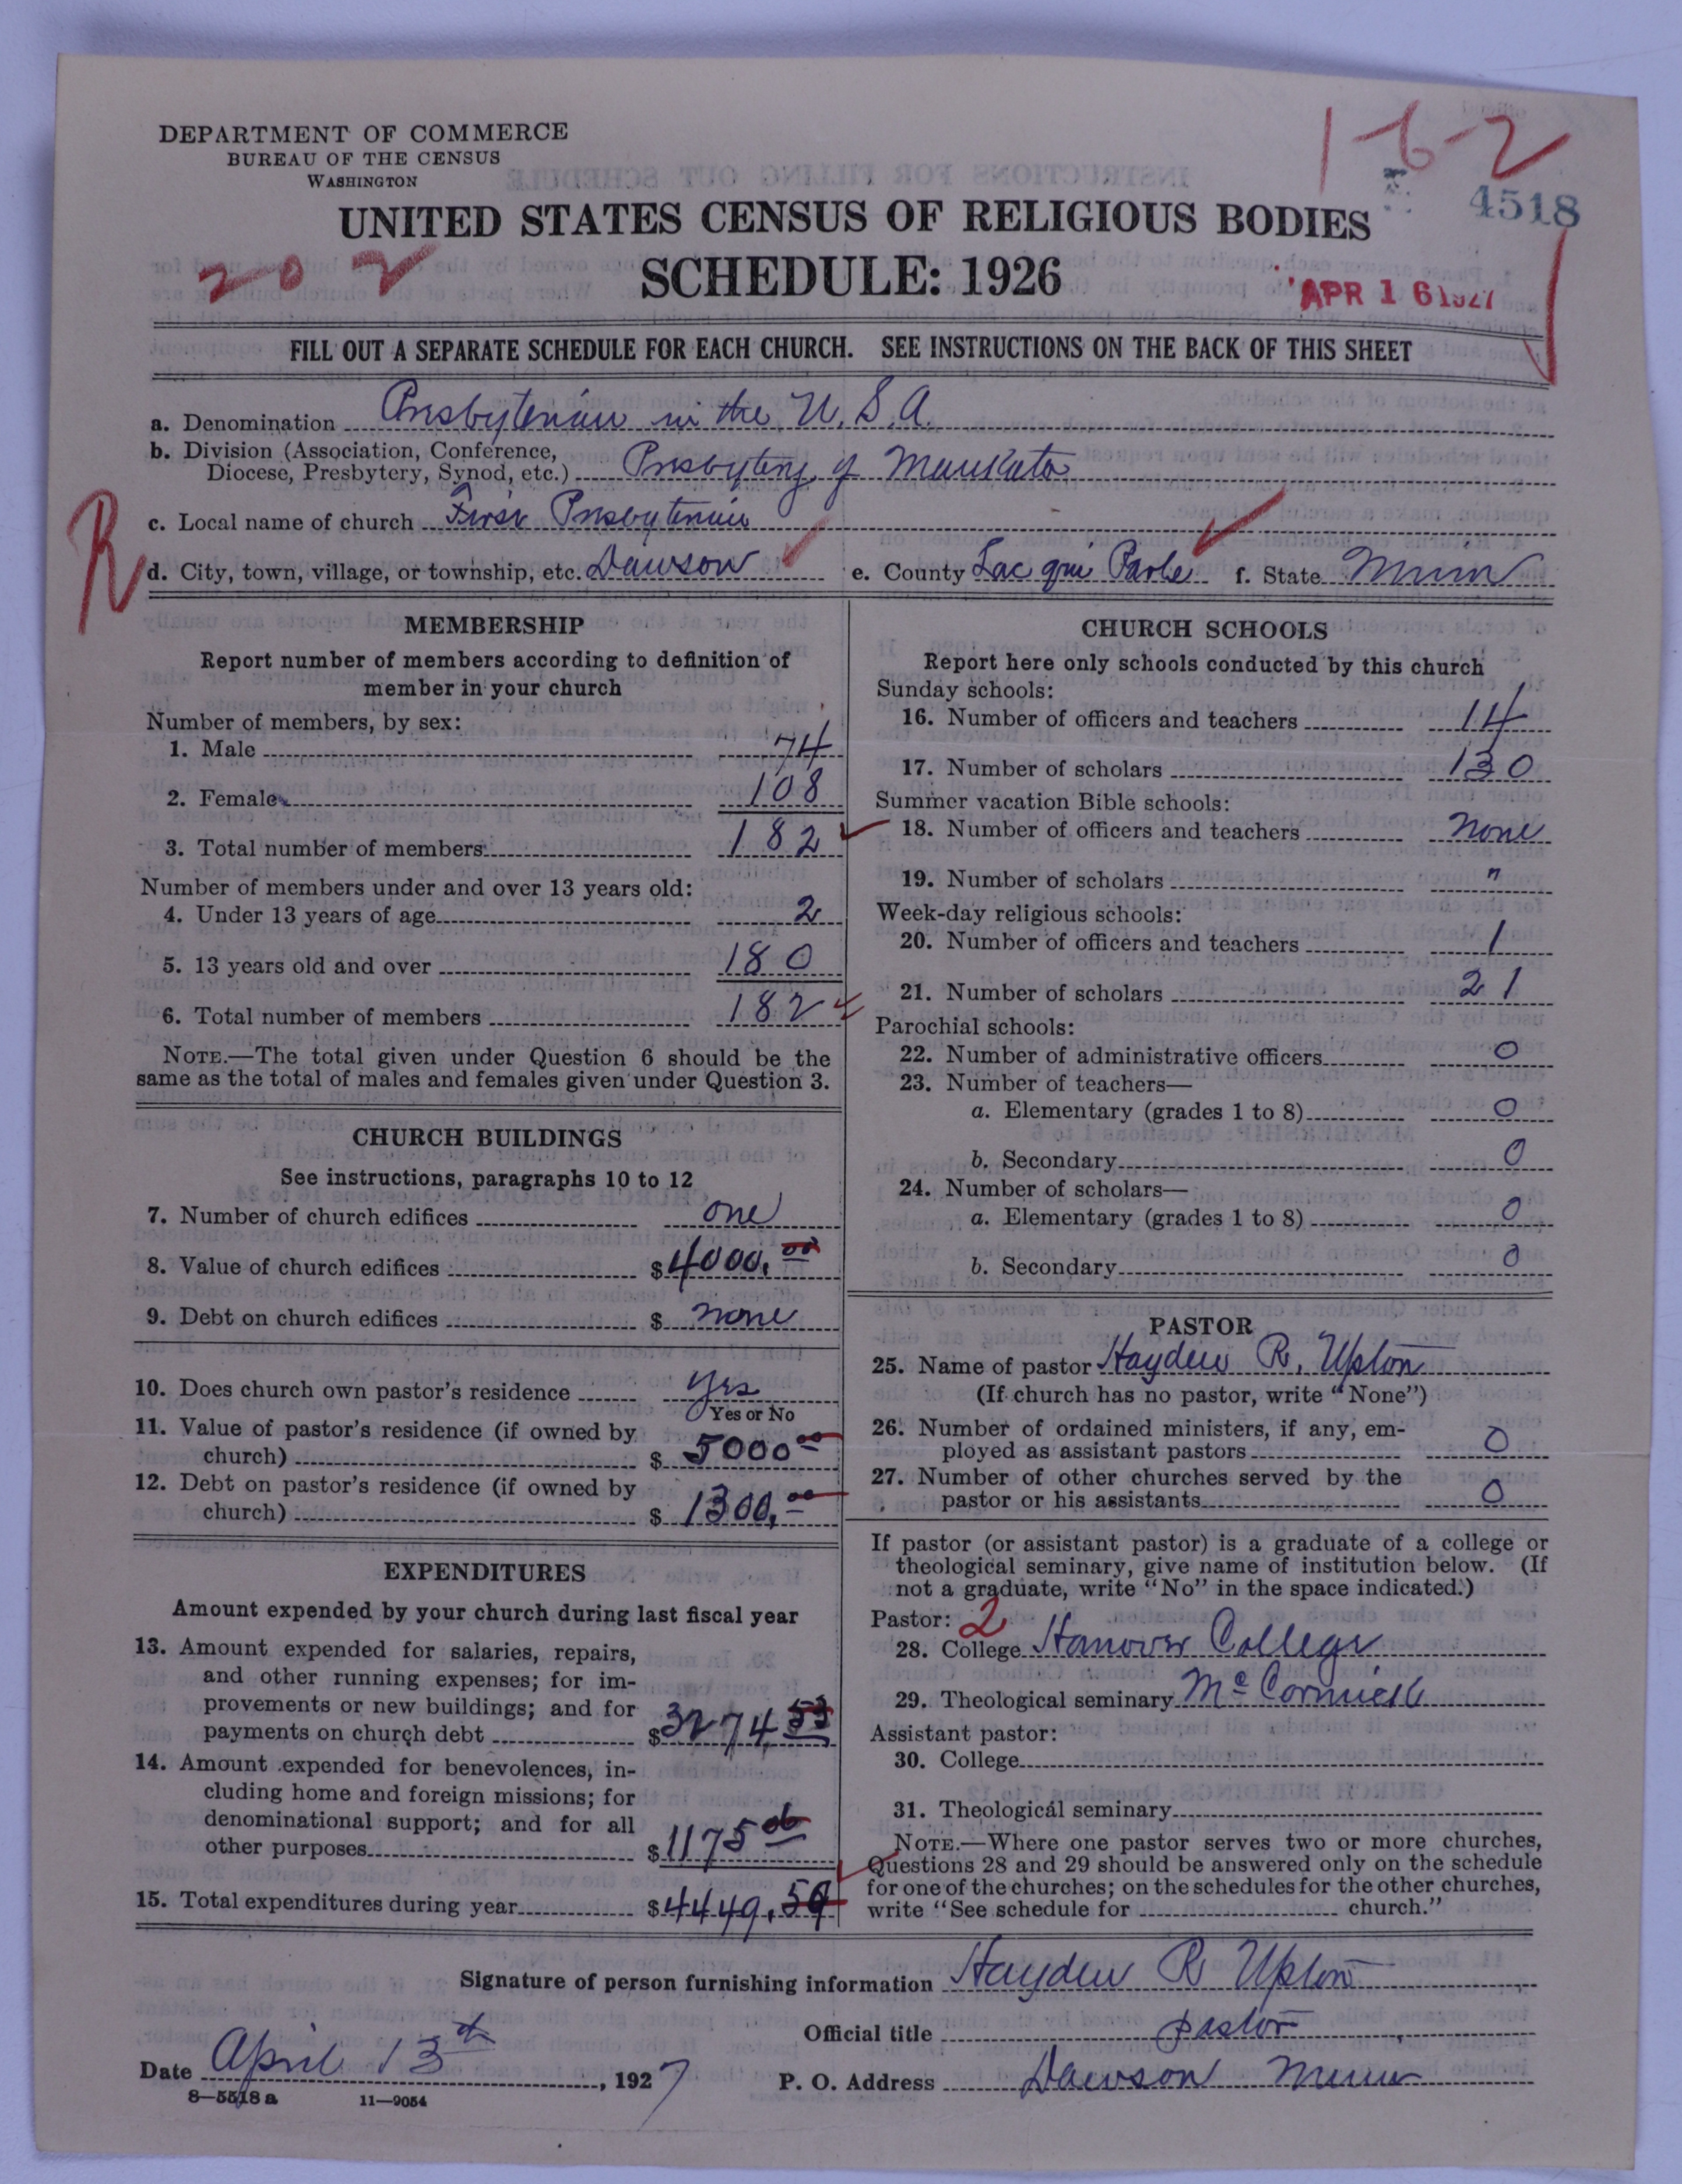 DEPARTMENT OF COMMERCE
BUREAU OF THE CENSUS
WASHINGTON
1-6-2
4518
UNITED STATES CENSUS OF RELIGIOUS BODIES
202
SCHEDULE: 1926
APR 16 1927
FILL OUT A SEPARATE SCHEDULE FOR EACH CHURCH. SEE INSTRUCTIONS ON THE BACK OF THIS SHEET
a. Denomination Presbyterian in the U.S.A.
b. Division (Association, Conference,
Diocese, Presbytery, Synod, etc.) Presbytery of Mankato
c. Local name of church First Presbyterian
R
d. City, town, village, or township, etc. Dawson e. County Lac qui Parle f. State Minn
MEMBERSHIP
Report number of members according to definition of
member in your church
Number of members, by sex:
1. Male 74
2. Female 108
3. Total number of members 182
Number of members under and over 13 years old:
4. Under 13 years of age 2
5. 13 years old and over 180
6. Total number of members 182
NOTE.—The total given under Question 6 should be the
same as the total of males and females given under Question 3.
CHURCH BUILDINGS
See instructions, paragraphs 10 to 12
7. Number of church edifices one
8. Value of church edifices $4000.00
9. Debt on church edifices $ none
10. Does church own pastor's residence yes
Yes or No
11. Value of pastor's residence (if owned by
church) $ 5000 00
12. Debt on pastor's residence (if owned by
church) $ 1300.00
EXPENDITURES
Amount expended by your church during last fiscal year
13. Amount expended for salaries, repairs,
and other running expenses; for im-
provements or new buildings; and for
payments on church debt $3274
14. Amount expended for benevolences, in-
cluding home and foreign missions; for
denominational support; and for all
other purposes $1175
15. Total expenditures during year $4449.59
CHURCH SCHOOLS
Report here only schools conducted by this church
Sunday schools:
16. Number of officers and teachers 14
17. Number of scholars 130
Summer vacation Bible schools:
18. Number of officers and teachers none
19. Number of scholars "
Week-day religious schools:
20. Number of officers and teachers 1
21. Number of scholars 21
Parochial schools:
22. Number of administrative officers 0
23. Number of teachers—
a. Elementary (grades 1 to 8) 0
b. Secondary 0
24. Number of scholars—
a. Elementary (grades 1 to 8) 0
b. Secondary 0
PASTOR
25. Name of pastor Hayden R. Upton
(If church has no pastor, write "None")
26. Number of ordained ministers, if any, em-
ployed as assistant pastors 0
27. Number of other churches served by the
pastor or his assistants 0
If pastor (or assistant pastor) is a graduate of a college or
theological seminary, give name of institution below. (If
not a graduate, write "No" in the space indicated.)
Pastor: 2
28. College Hanover College
29. Theological seminary McCormick
Assistant pastor:
30. College
31. Theological seminary
NOTE.—Where one pastor serves two or more churches,
Questions 28 and 29 should be answered only on the schedule
for one of the churches; on the schedules for the other churches,
write "See schedule for church."
Signature of person furnishing information Hayden R Upton
Official title pastor
Date April 13th, 1927
P. O. Address Dawson Minn
8—5518 a 11—9054